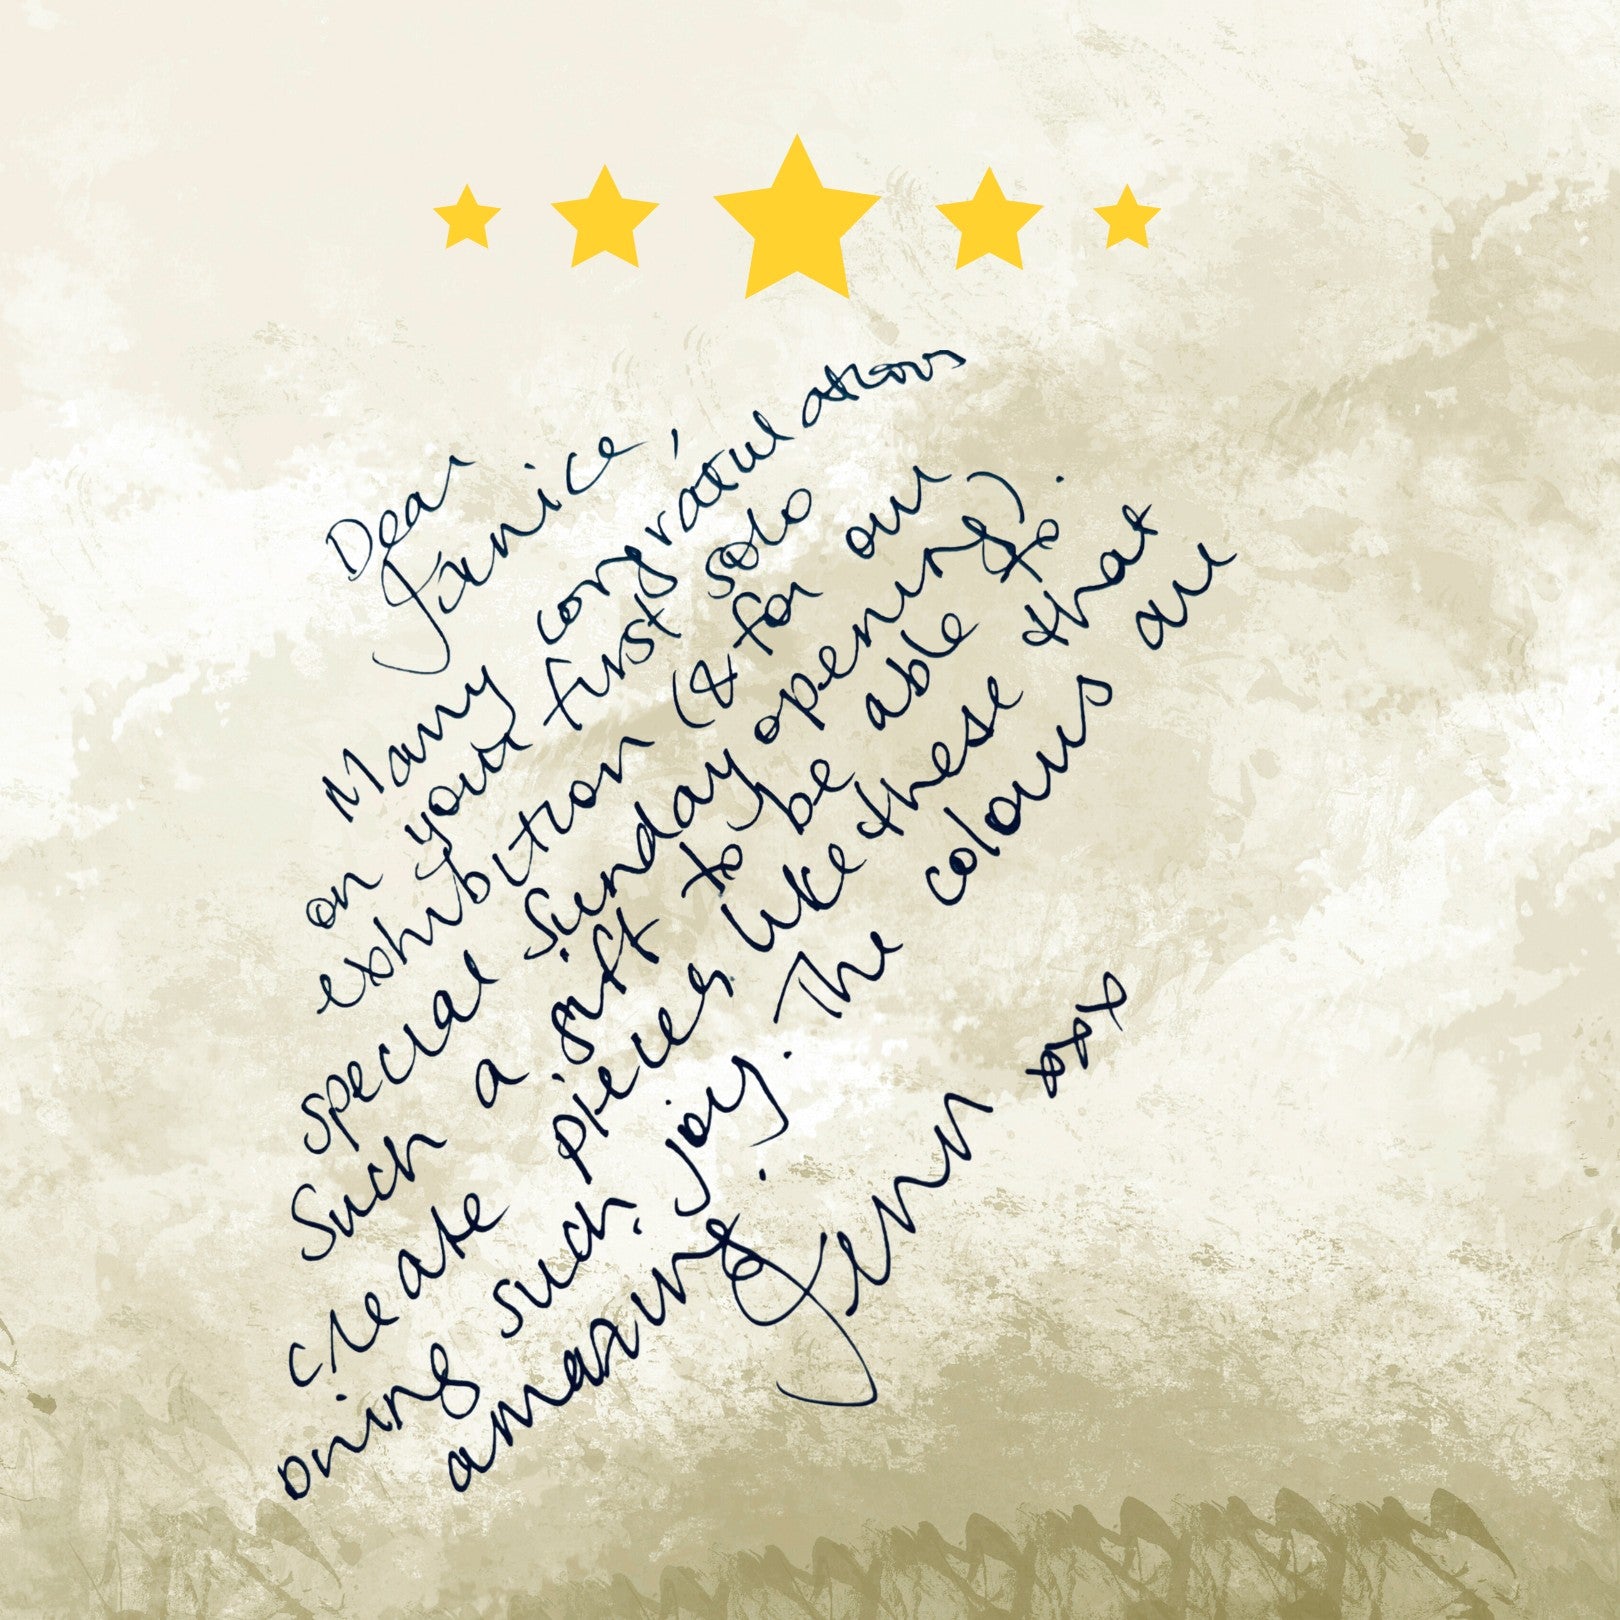 Dear
Janice,
Many congratulations
on your first solo
exhibition (& for our
special Sunday opening).
Such a gift to be able to
create pieces like these that
bring such joy. The colours are
amazing.
Jenn xxx